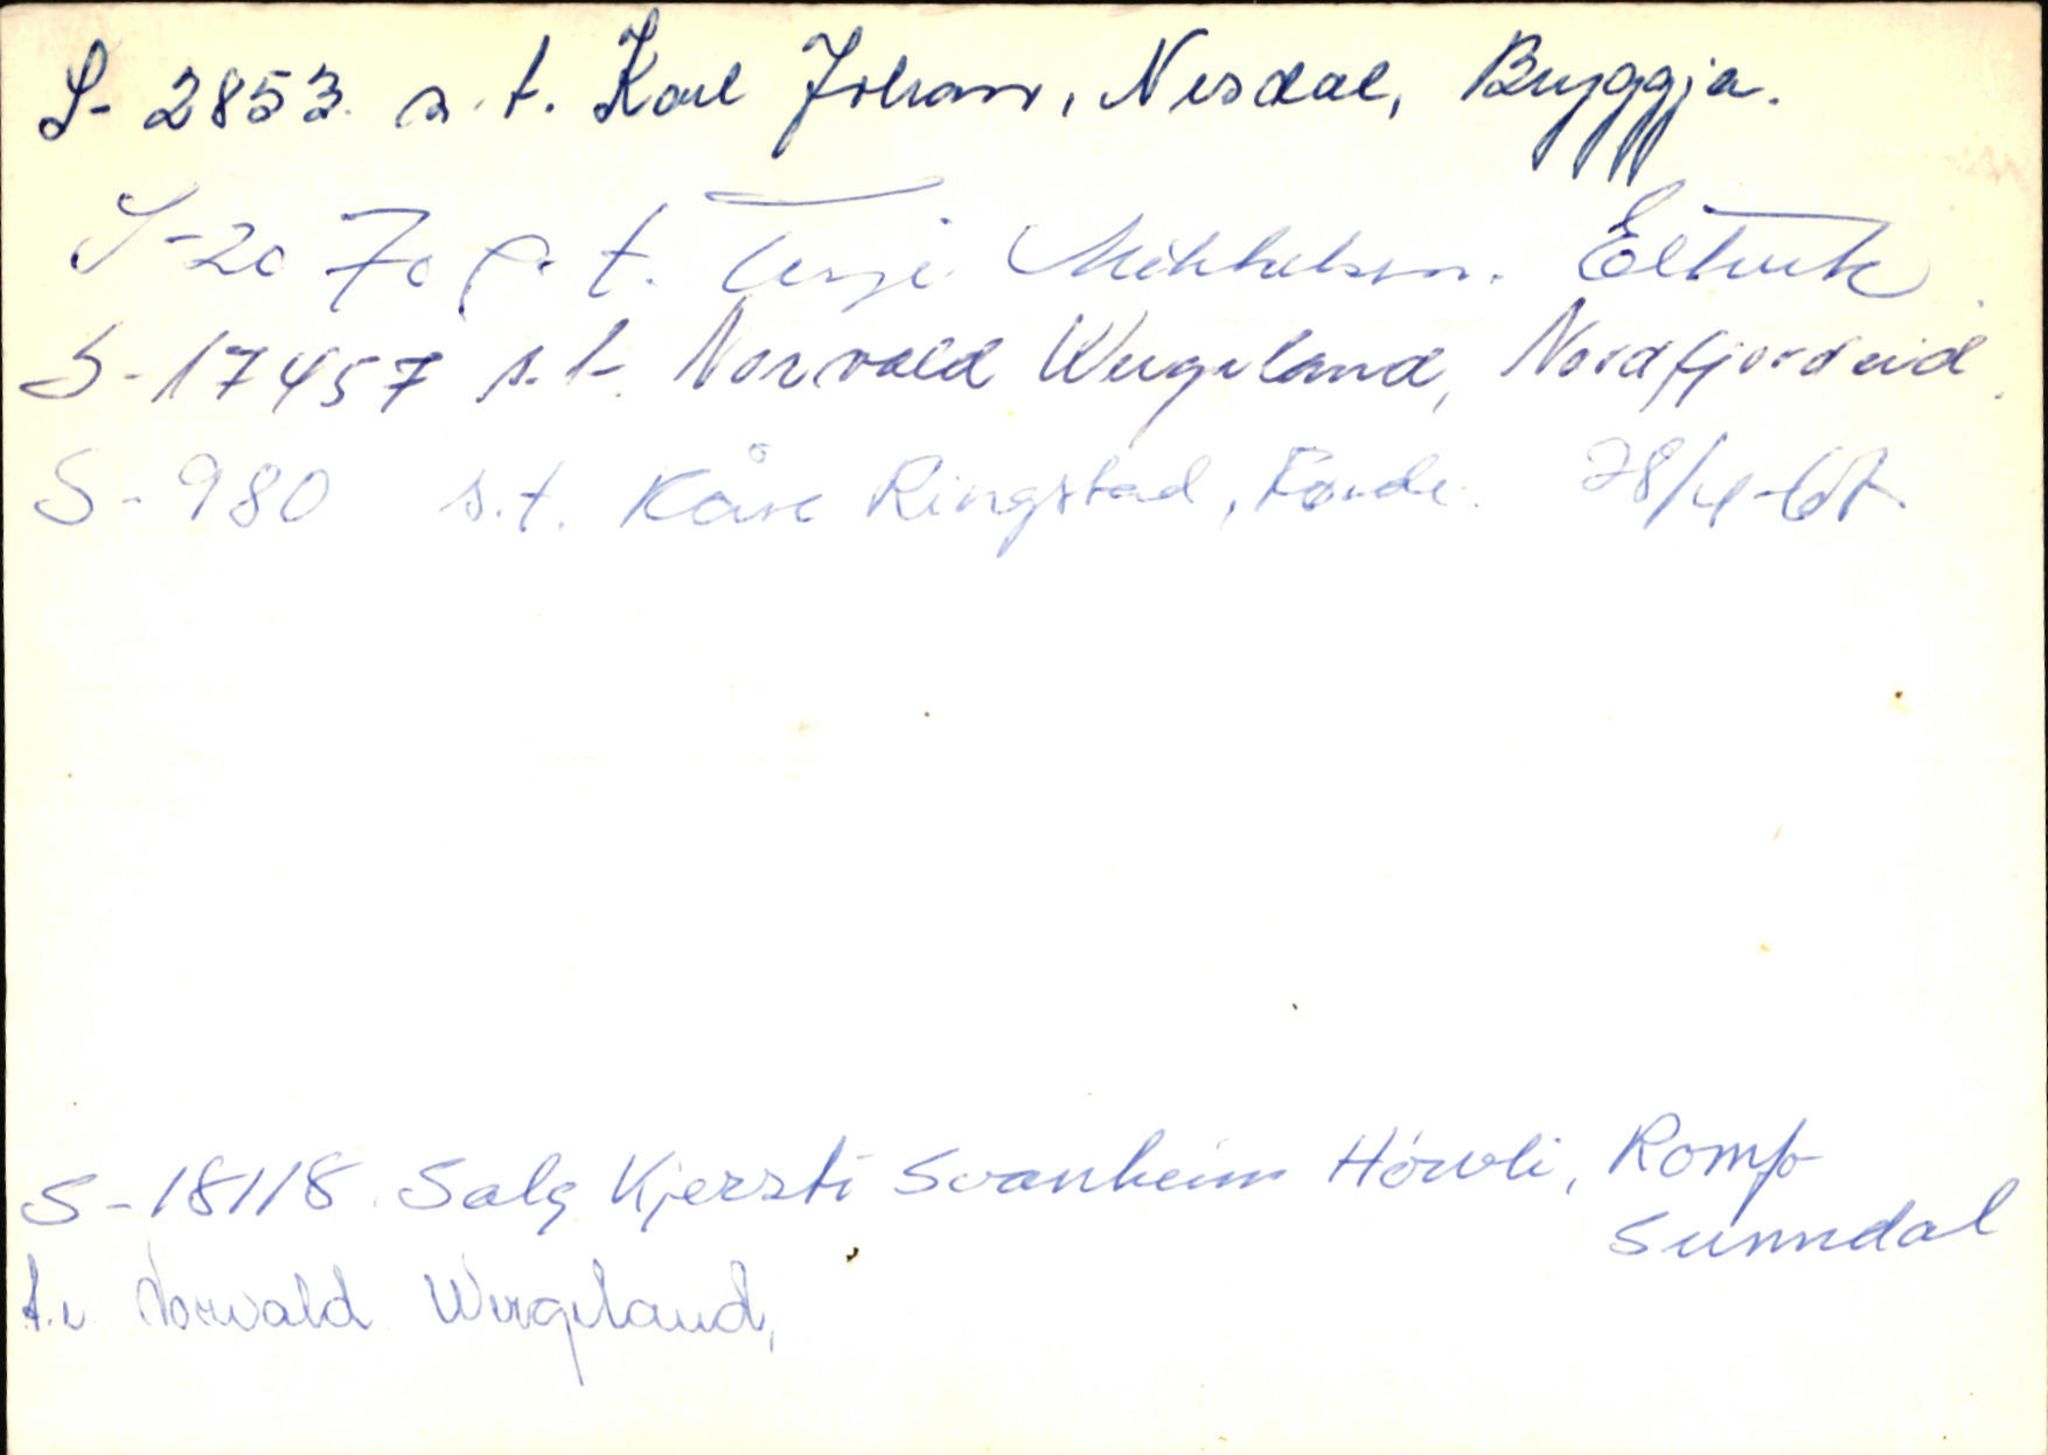 S- 2853. s. t. Karl Johan, Nesdal, Bryggja.
S-2070 s. t. Terje Mikkelsen. Eltvik.
S-17457 s.t. Norvald Wergeland, Nordfjordeid.
S-980 s.t. Kåre Ringstad, Førde. 28/4-67.
S-18118. Salg Kjersti Svanheim Hówli, Romfo
Sunndal
t. Norvald Wergeland,